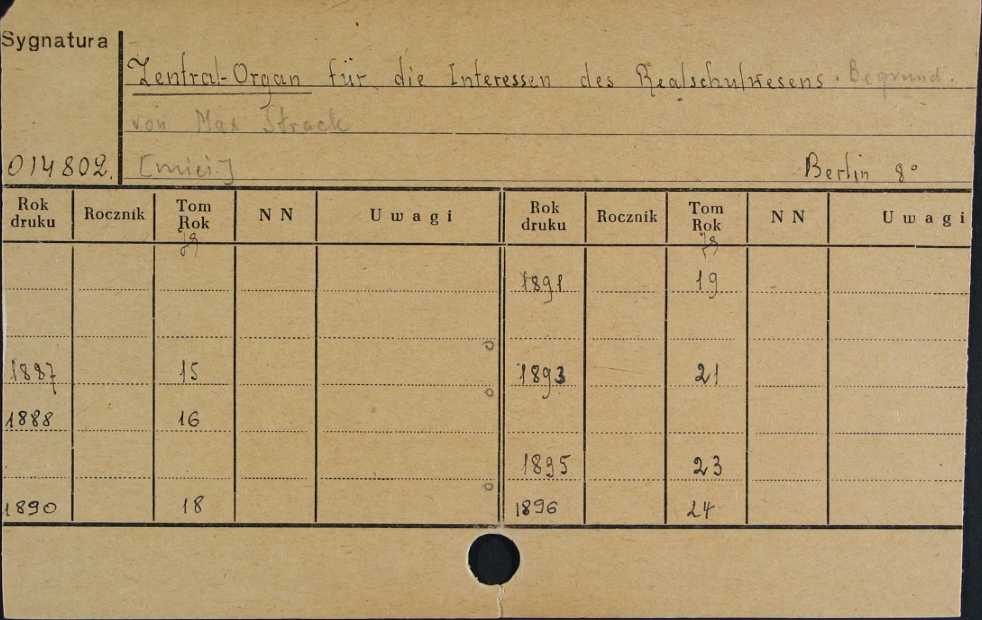 Sygnatura
Zentral-Organ für die Interessen des Realschulwesens. Begründ.
von Max Strack
014802. Berlin 8°
Rok druku Rocznik Tom Rok NN Uwagi Rok druku Rocznik Tom Rok NN Uwagi
Jg Jg
1891 19
1887 15 1893 21
1888 16
1895 23
1890 18 1896 24